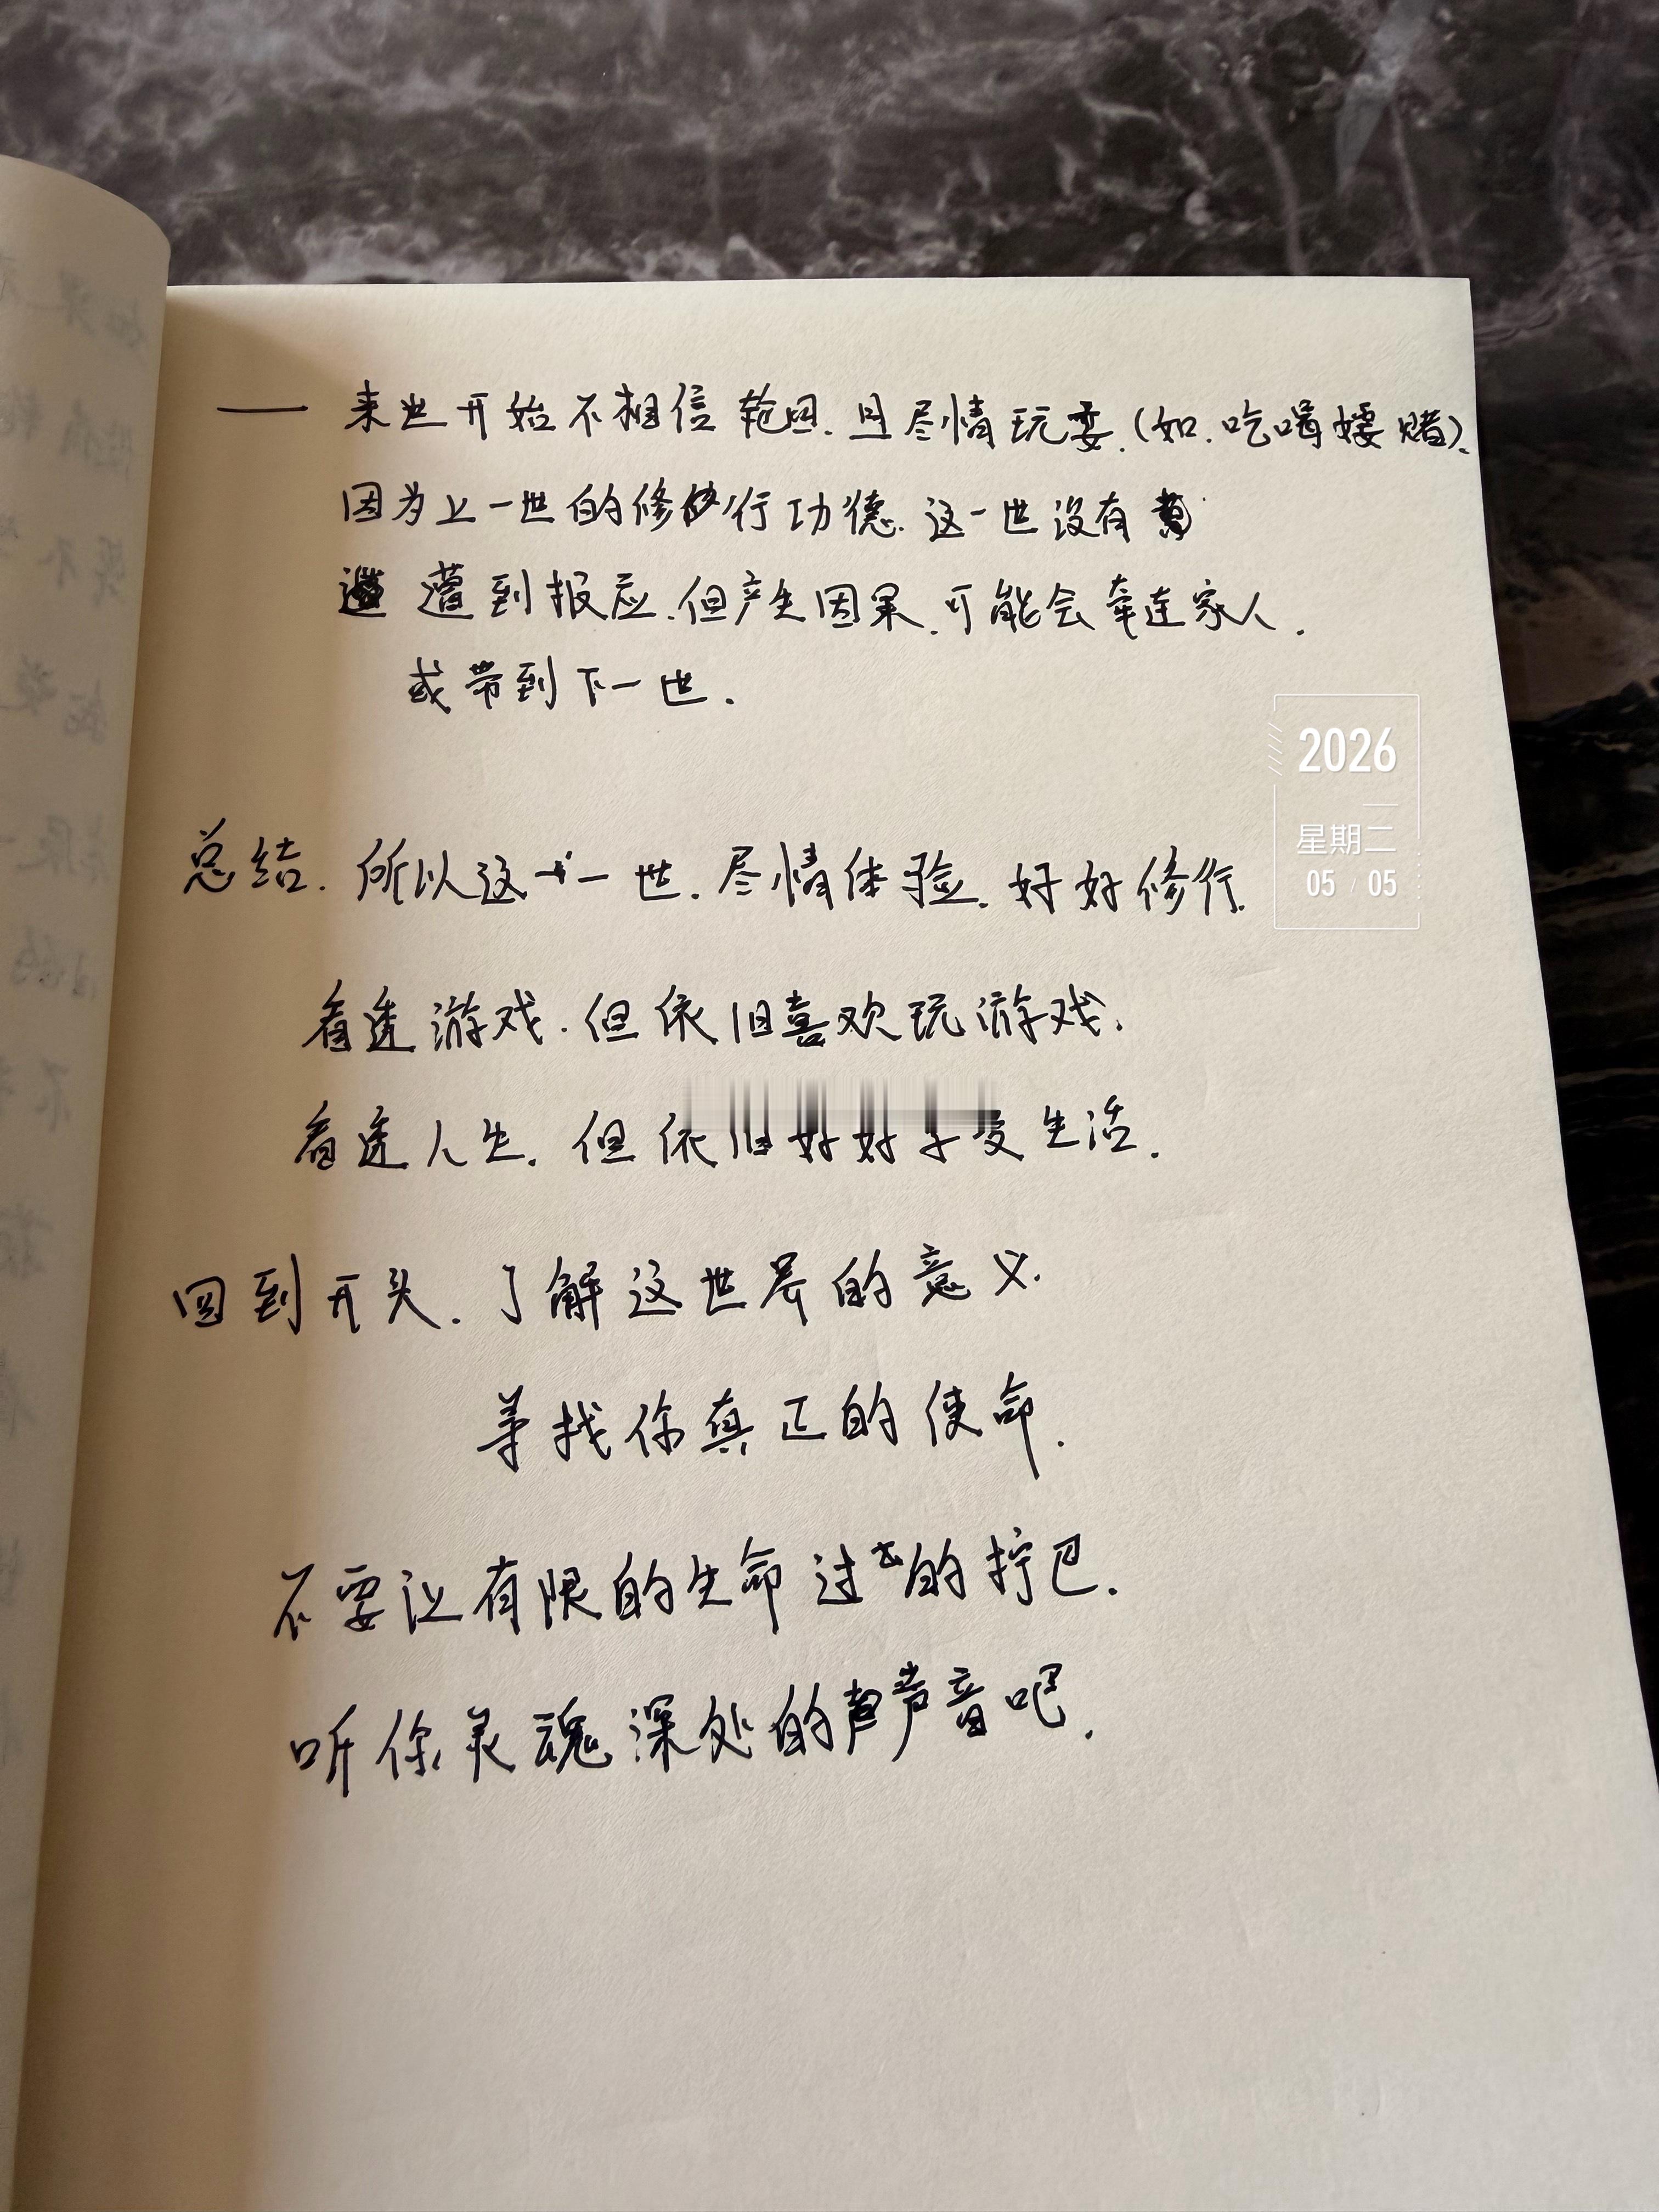 —— 来世开始不相信轮回.且尽情玩耍.(如.吃喝嫖赌).
因为上一世的修行功德.这一世没有
遭到报应.但产生因果.可能会牵连家人.
或带到下一世.
2026
星期二
05 / 05
总结.所以这一世.尽情体验.好好修行.
看透游戏.但依旧喜欢玩游戏.
看透人生.但依旧好好享受生活.
回到开头.了解这世界的意义.
寻找你真正的使命.
不要让有限的生命过去的拧巴.
听你灵魂深处的声音吧.